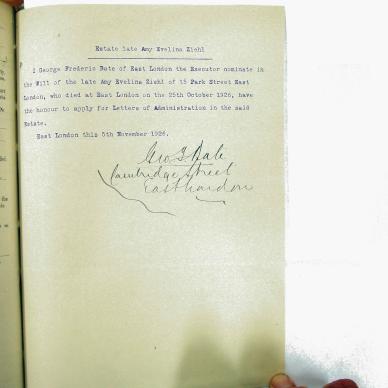 Estate late Amy Evelina Ziehl
I George Frederic Bate of East London the Executor nominate in
the Will of the late Amy Evelina Ziehl of 15 Park Street East
London, who died at East London on the 25th October 1926, have
the honour to apply for Letters of Administration in the said
Estate.
East London this 5th November 1926.
Geo F Bate
Cambridge Street
East London